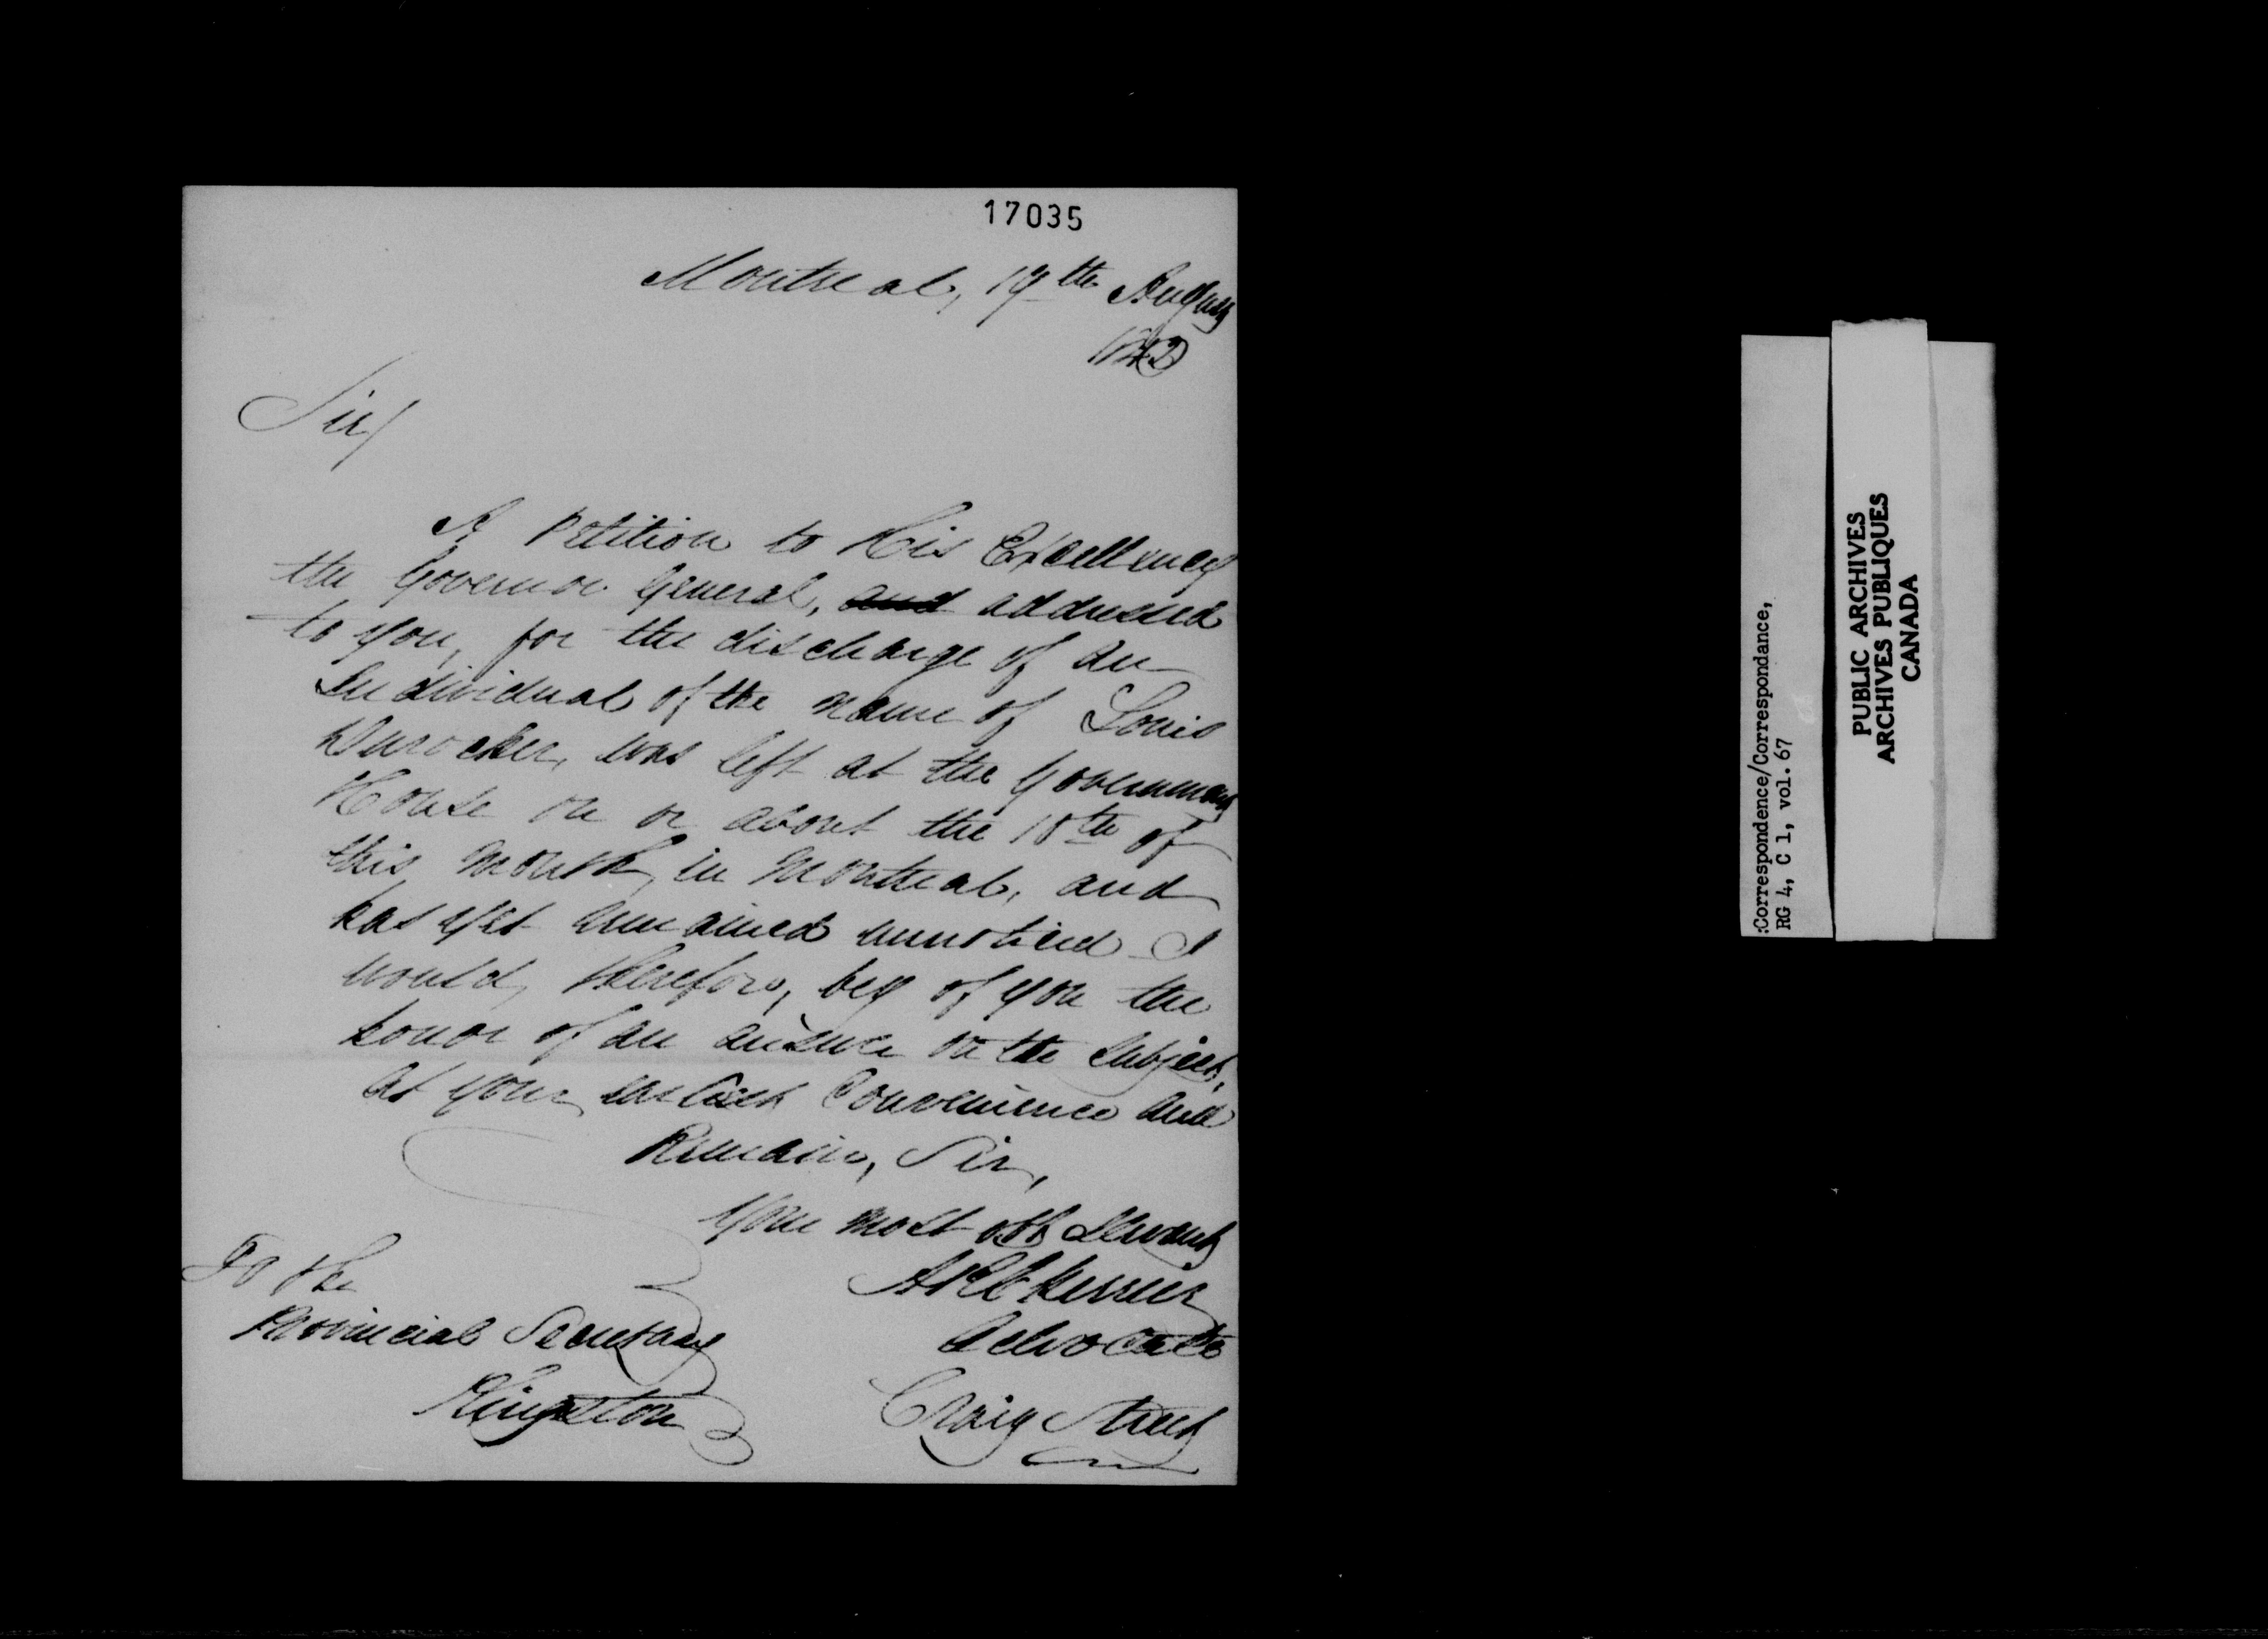 17035
Montreal, 19th August
1842
Sir/
A Petition to His Excellency
the Governor General, and addressed
to you, for the discharge of an
Individual of the name of Louis
Durocher, was left at the Government
House on or about the 10th of
this month, in Montreal, and
has yet remained unnoticed I
would, therefore, beg of you the
honor of an answer on the subject,
at your earliest Convenience and
Remain, Sir,
Your most obt Servant
Cherrier
Advocate
Craig Street
To the
Provincial Secretary
Kingston
:Correspondence/Correspondance,
RG 4, C 1, vol. 67
PUBLIC ARCHIVES
ARCHIVES PUBLIQUES
CANADA